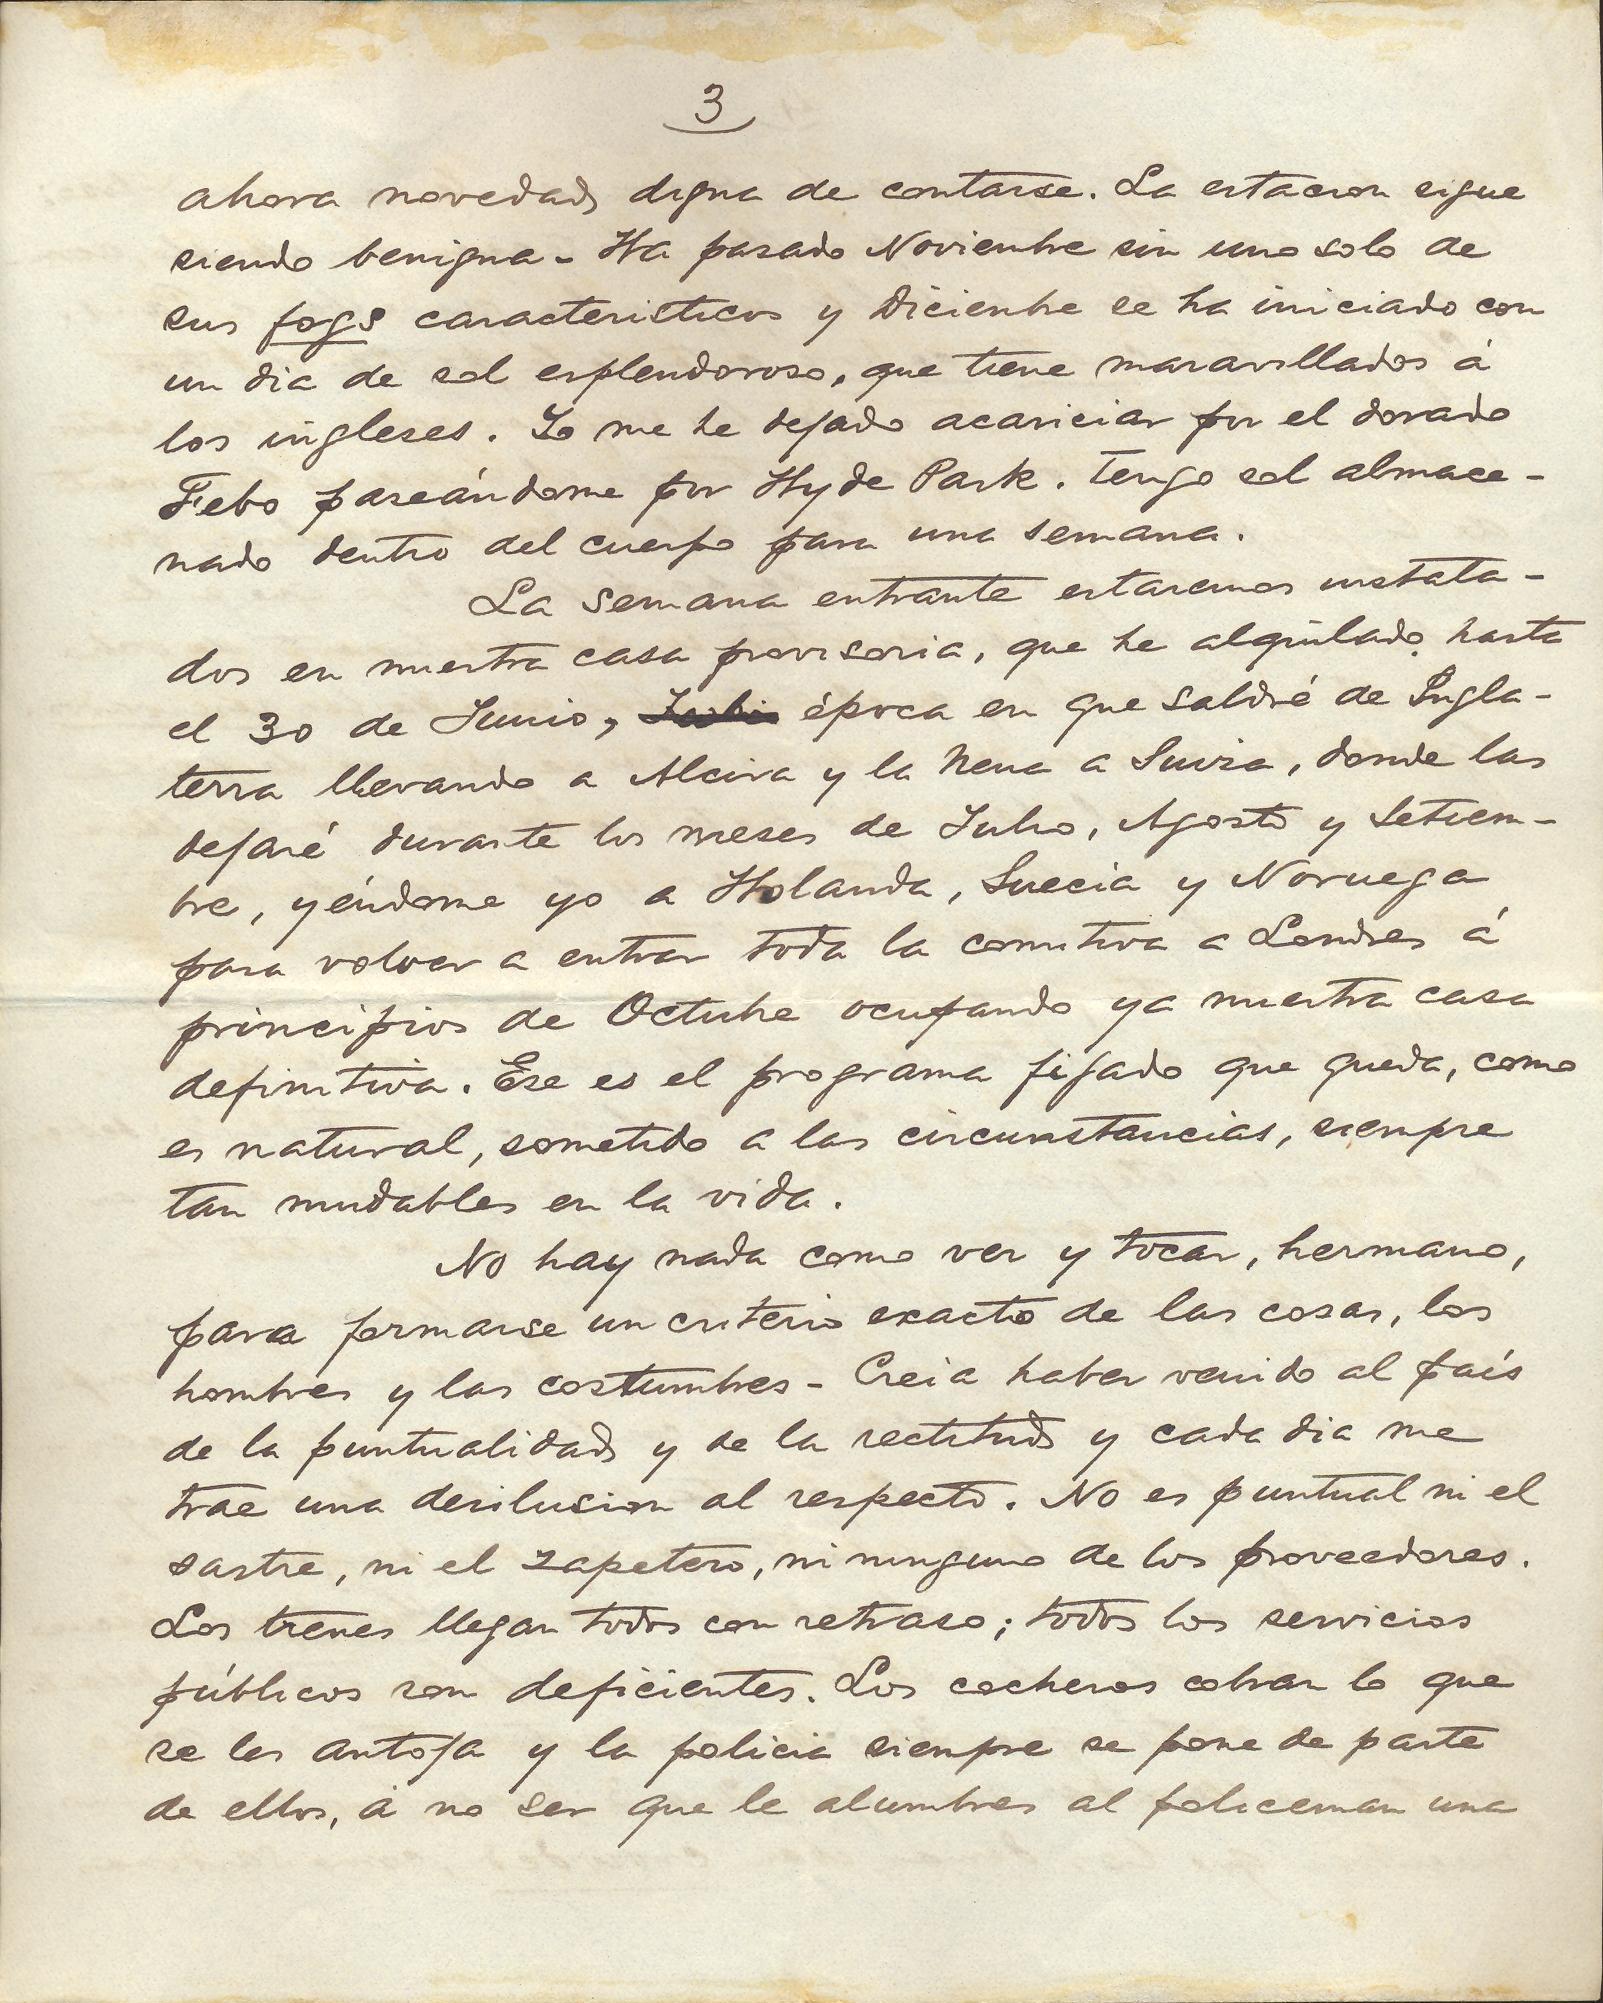 3
ahora novedad digna de contarse. La estacion sigue
siendo benigna - Ha pasado Noviembre sin uno solo de
sus fogs caracteristicos y Diciembre se ha iniciado con
un dia de sol esplendoroso, que tiene maravillados á
los ingleses. Yo me he dejado acariciar por el dorado
Febo paseándome por Hyde Park. Tengo sol almace-
nado dentro del cuerpo para una semana.
La semana entrante estaremos instala-
dos en nuestra casa provisoria, que he alquilado hasta
el 30 de Junio, época en que saldré de Ingla-
terra llevando a Alcira y la Nena a Suiza, donde las
dejaré durante los meses de Julio, Agosto y Setiem-
bre, yéndome yo a Holanda, Suecia y Noruega
para volver a entrar toda la comitiva a Londres á
principios de Octubre ocupando ya nuestra casa
definitiva. Ese es el programa fijado que queda, como
es natural, sometido a las circunstancias, siempre
tan mudables en la vida.
No hay nada como ver y tocar, hermano,
para formarse un criterio exacto de las cosas, los
hombres y las costumbres - Creia haber venido al país
de la puntualidad y de la rectitud y cada dia me
trae una desilusion al respecto. No es puntual ni el
sastre, ni el zapetero, ni ninguno de los proveedores.
Los trenes llegan todos con retraso; todos los servicios
públicos son deficientes. Los cocheros cobran lo que
se les antoja y la policia siempre se pone de parte
de ellos, á no ser que le alumbres al policeman una